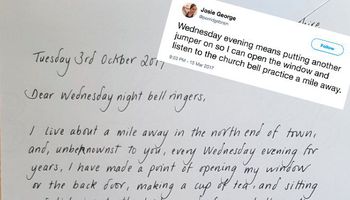 Josie George
Follow
Wednesday evening means putting another
jumper on so I can open the window and
listen to the church bell practice a mile away.
9:03 PM - 15 Mar 2017
Tuesday 3rd October
Dear Wednesday night bell ringers,
I live about a mile away in the north end of town,
and, unbeknownst to you, every Wednesday evening for
years, I have made a point of opening my window
or the back door, making a cup of tea, and sitting